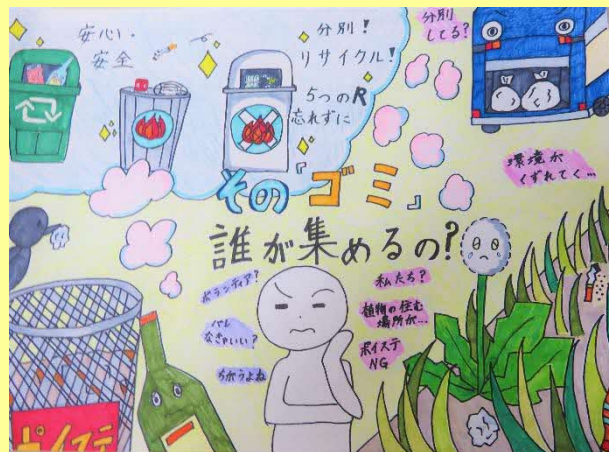 安心い
安全
分別!
リサイクル!
5つのR
忘れずに
分別
してる?
環境が
くずれてく…
その『ゴミ』
誰が集めるの?
ボランティア?
バレ
なきゃいい?
ちがうよね
私たち?
植物の住む
場所が…
ポイステ
NG
ポイステ